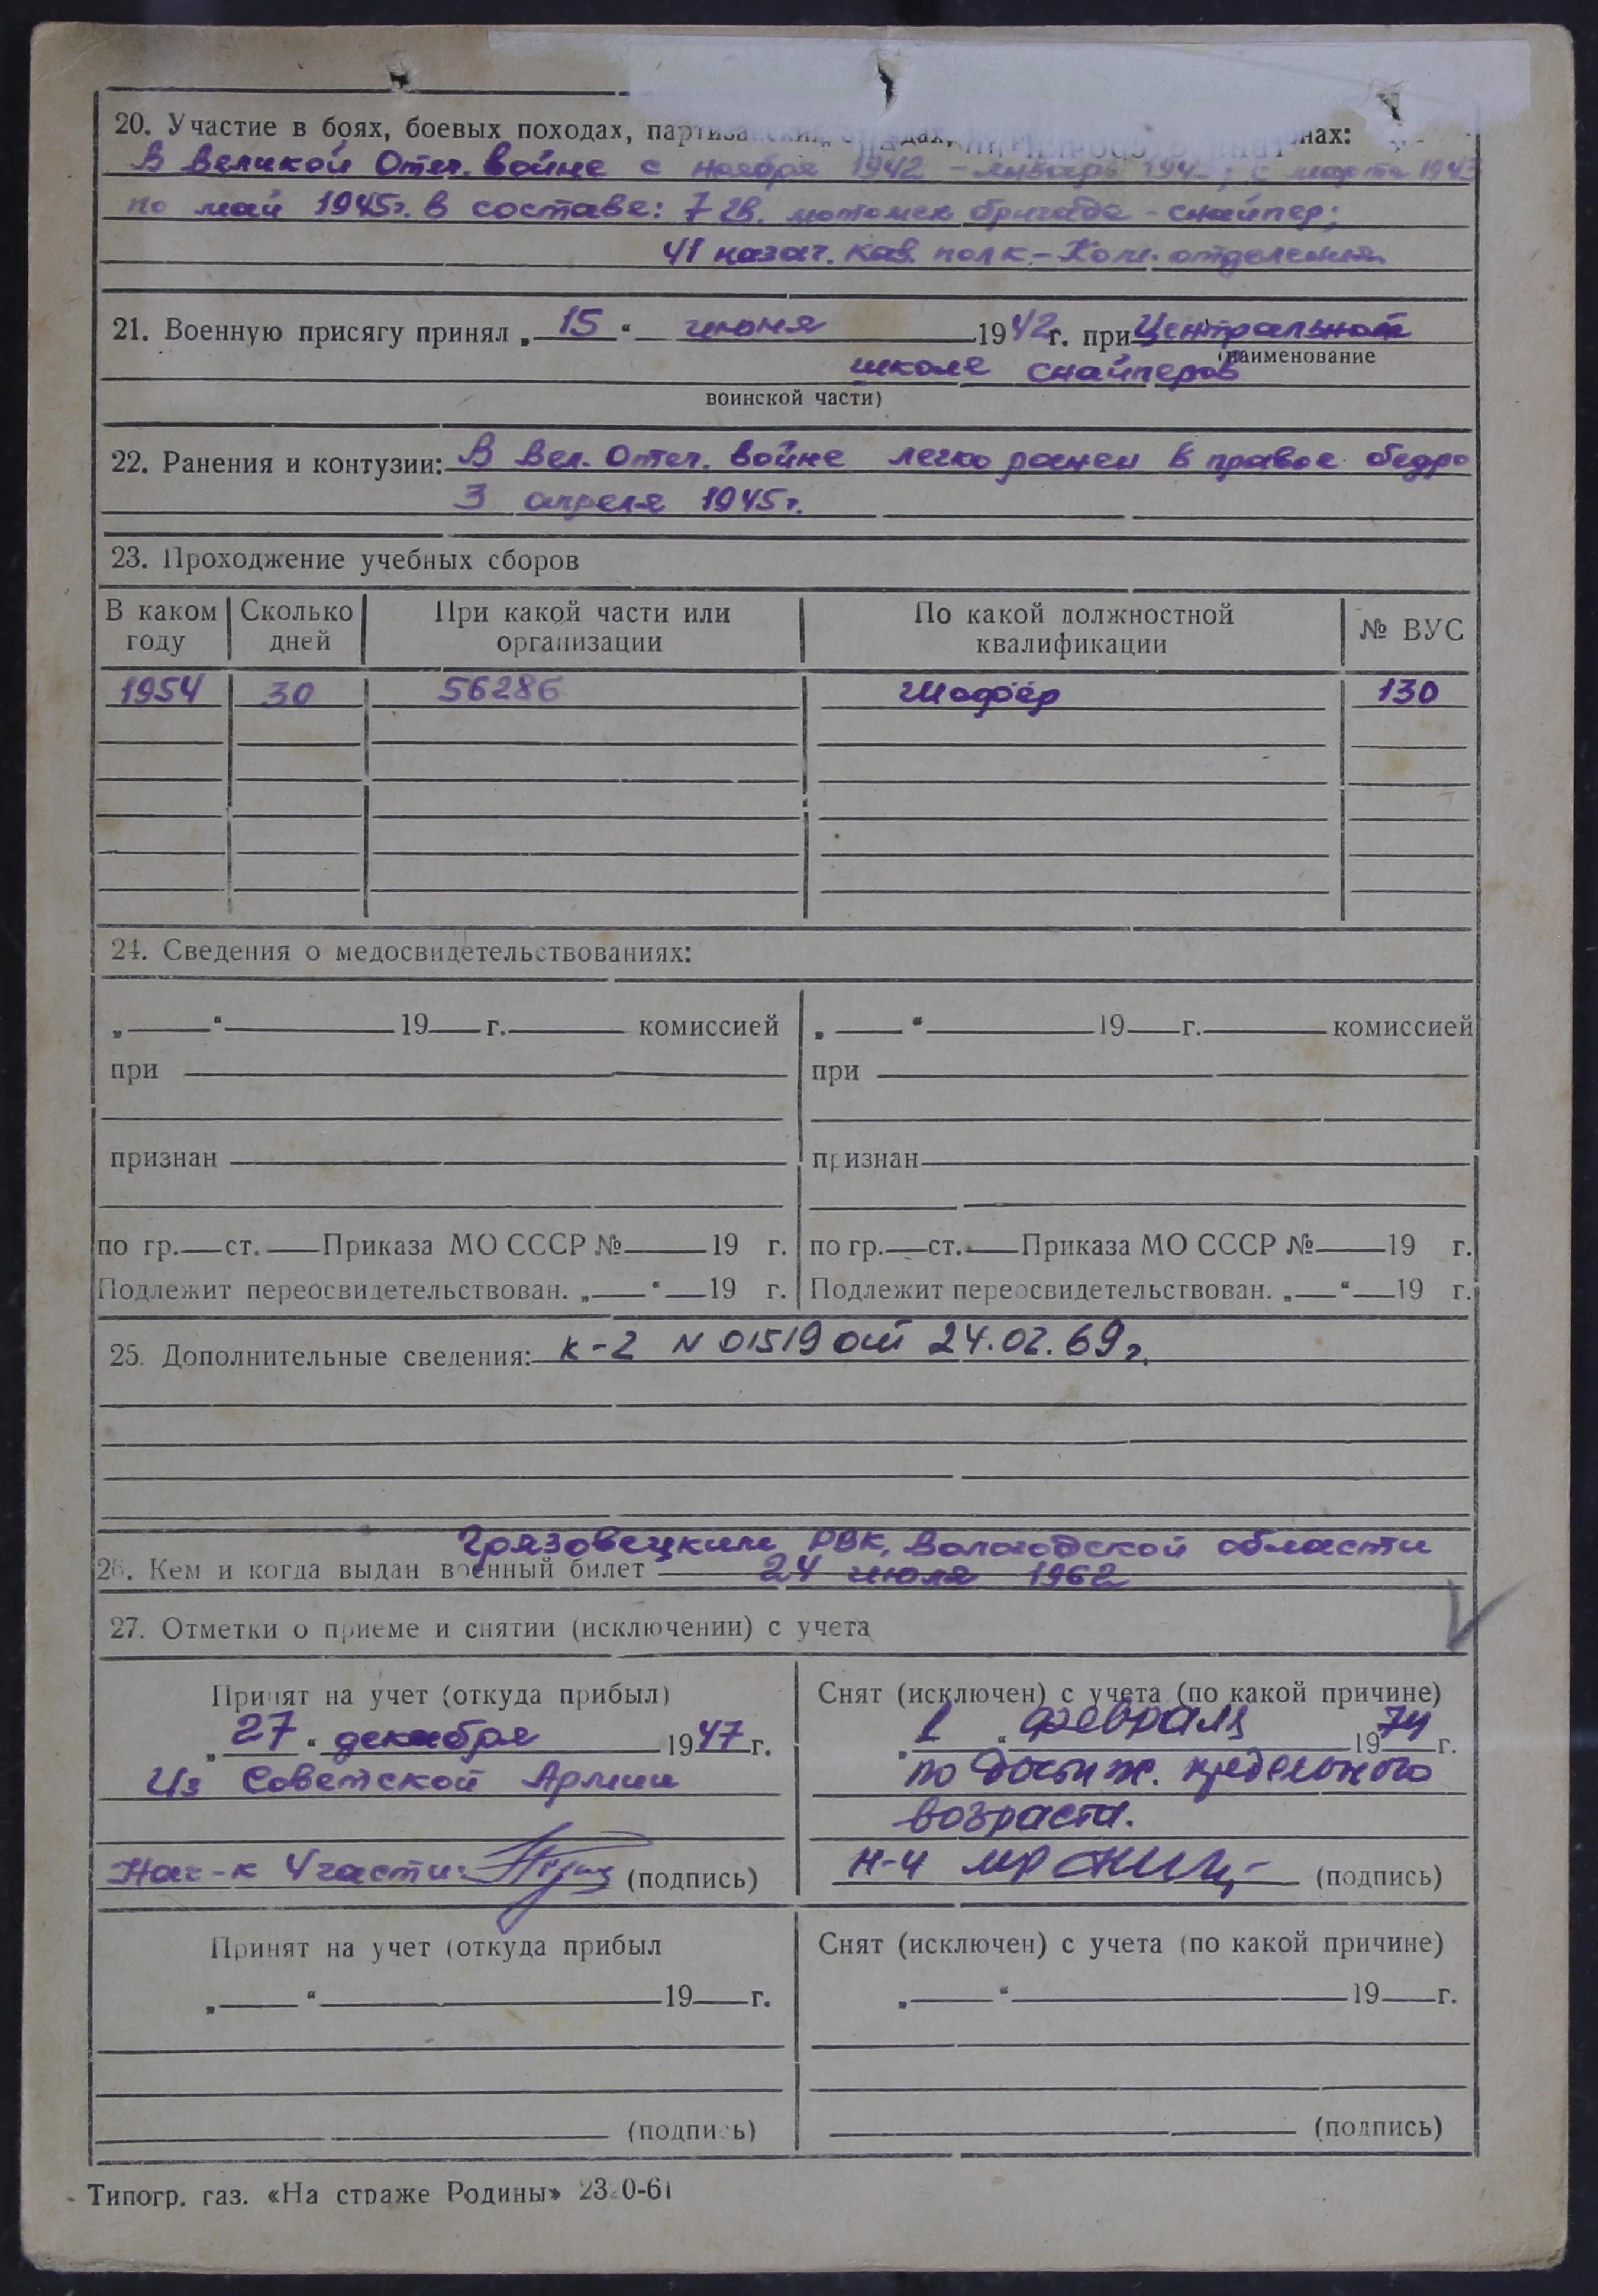 20. Участие в боях, боевых походах, партизанских отрядах, нах:
В Великой Отеч. войне с ноября 1942 - январь 194 ; с марта 1943
по май 1945г. в составе: 7 гв. мотомех бригада - снайпер;
41 казач. кав. полк - Ком. отделения
21. Военную присягу принял „ 15 “ июня 1942г. при Центральной
(наименование
школе снайперов
воинской части)
22. Ранения и контузии: В Вел. Отеч. войне легко ранен в правое бедро
3 апреля 1945г.
23. Прохождение учебных сборов
В каком году Сколько дней При какой части или организации По какой должностной квалификации № ВУС
1954 30 56286 Шофёр 130
24. Сведения о медосвидетельствованиях:
„ “ 19 г. комиссией „ “ 19 г. комиссией
при при
признан признан
по гр. ст. Приказа МО СССР № 19 г. по гр. ст. Приказа МО СССР № 19 г.
Подлежит переосвидетельствован. „ “ 19 г. Подлежит переосвидетельствован. „ “ 19 г.
25. Дополнительные сведения: К-2 N 01519 от 24.02.69г.
Грязовецким РВК, Вологодской области
26. Кем и когда выдан военный билет 24 июля 1962
27. Отметки о приеме и снятии (исключении) с учета
Принят на учет (откуда прибыл) Снят (исключен) с учета (по какой причине)
„ 27 “ декабря 1947 г. „ 1 “ февраля 1974 г.
Из Советской Армии по достиж. предельного
возраста.
Нач-к 4 части (подпись) Н-4 (подпись)
Принят на учет (откуда прибыл Снят (исключен) с учета (по какой причине)
„ “ 19 г. „ “ 19 г.
(подпись) (подпись)
Типогр. газ. «На страже Родины»